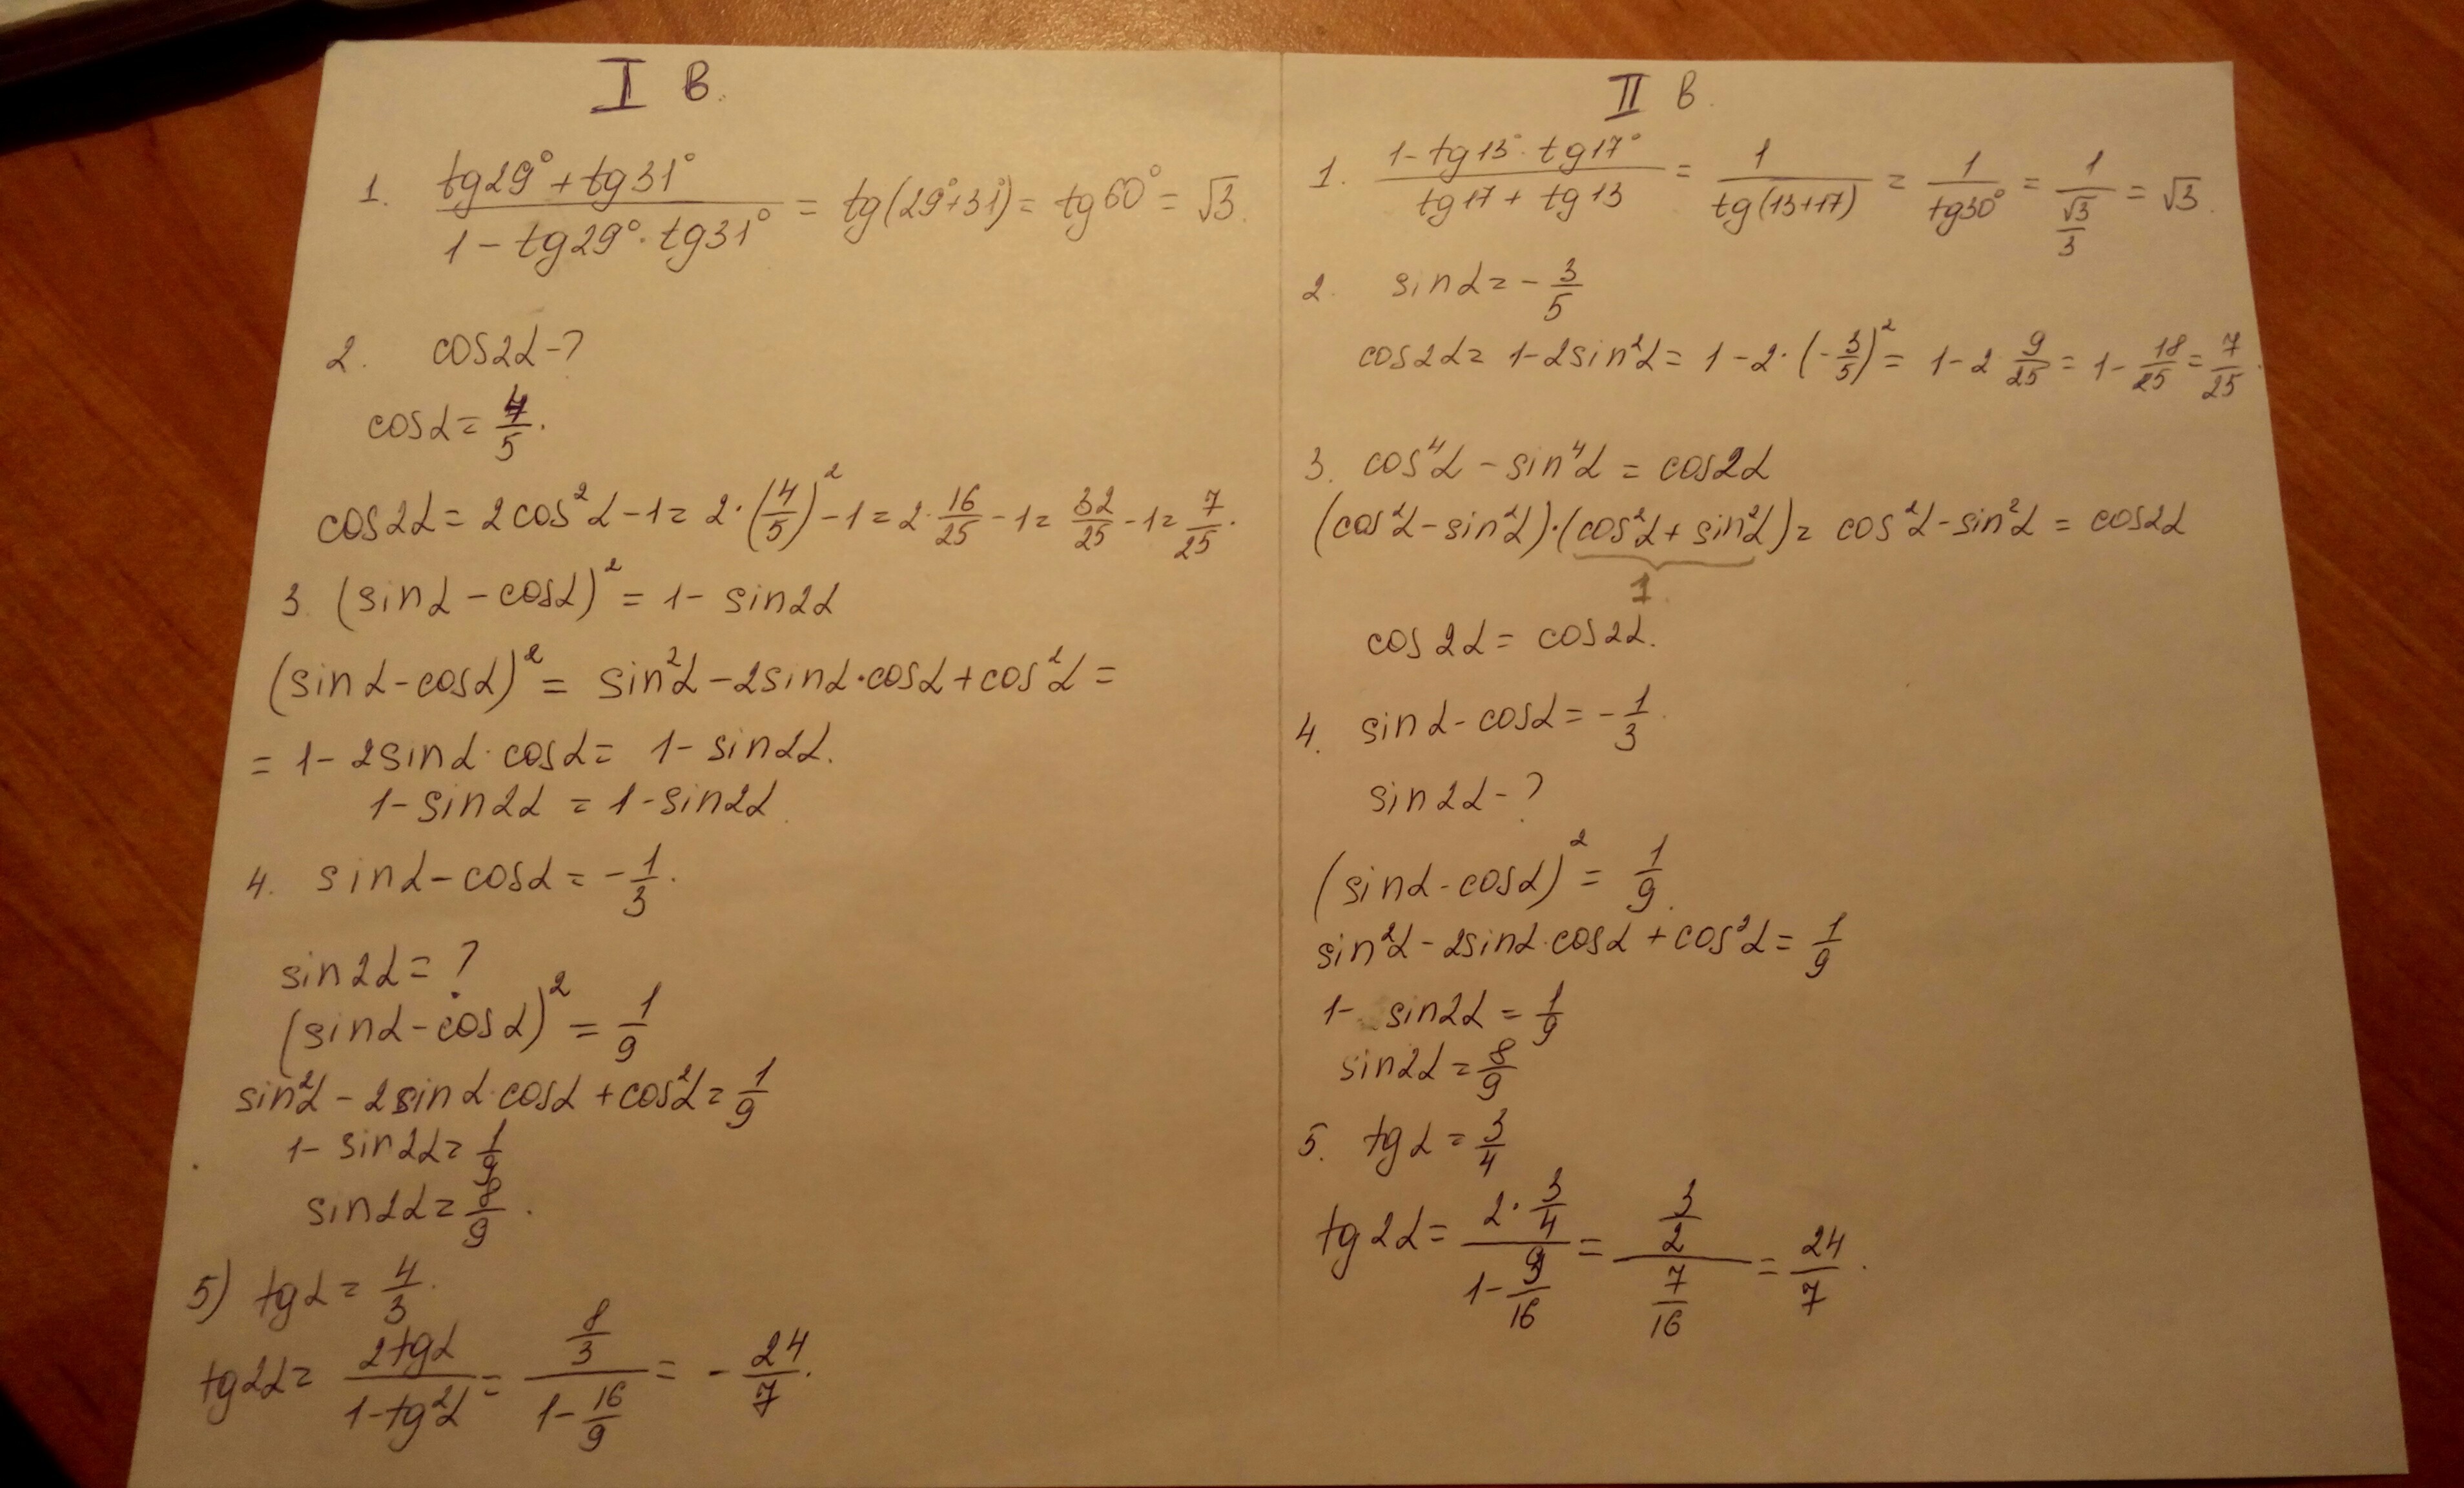 I В.
1. (tg29° + tg31°)/(1 - tg29° · tg31°) = tg(29°+31°) = tg60° = √3.
2. cos2α - ?
cosα = 4/5.
cos2α = 2cos²α - 1 = 2·(4/5)² - 1 = 2·16/25 - 1 = 32/25 - 1 = 7/25.
3. (sinα - cosα)² = 1 - sin2α
(sinα - cosα)² = sin²α - 2sinα·cosα + cos²α =
= 1 - 2sinα·cosα = 1 - sin2α.
1 - sin2α = 1 - sin2α
4. sinα - cosα = -1/3.
sin2α = ?
(sinα - cosα)² = 1/9
sin²α - 2sinα·cosα + cos²α = 1/9
1 - sin2α = 1/9
sin2α = 8/9.
5) tgα = 4/3.
tg2α = 2tgα/(1 - tg²α) = (8/3)/(1 - 16/9) = -24/7.
II В.
1. (1 - tg13° · tg17°)/(tg17 + tg13) = 1/tg(13+17) = 1/tg30° = 1/(√3/3) = √3.
2. sinα = -3/5
cos2α = 1 - 2sin²α = 1 - 2·(-3/5)² = 1 - 2·9/25 = 1 - 18/25 = 7/25.
3. cos⁴α - sin⁴α = cos2α
(cos²α - sin²α)·(cos²α + sin²α) = cos²α - sin²α = cos2α
1
cos2α = cos2α.
4. sinα - cosα = -1/3.
sin2α - ?
(sinα - cosα)² = 1/9.
sin²α - 2sinα·cosα + cos²α = 1/9
1 - sin2α = 1/9
sin2α = 8/9
5. tgα = 3/4
tg2α = (2·3/4)/(1 - 9/16) = (3/2)/(7/16) = 24/7.